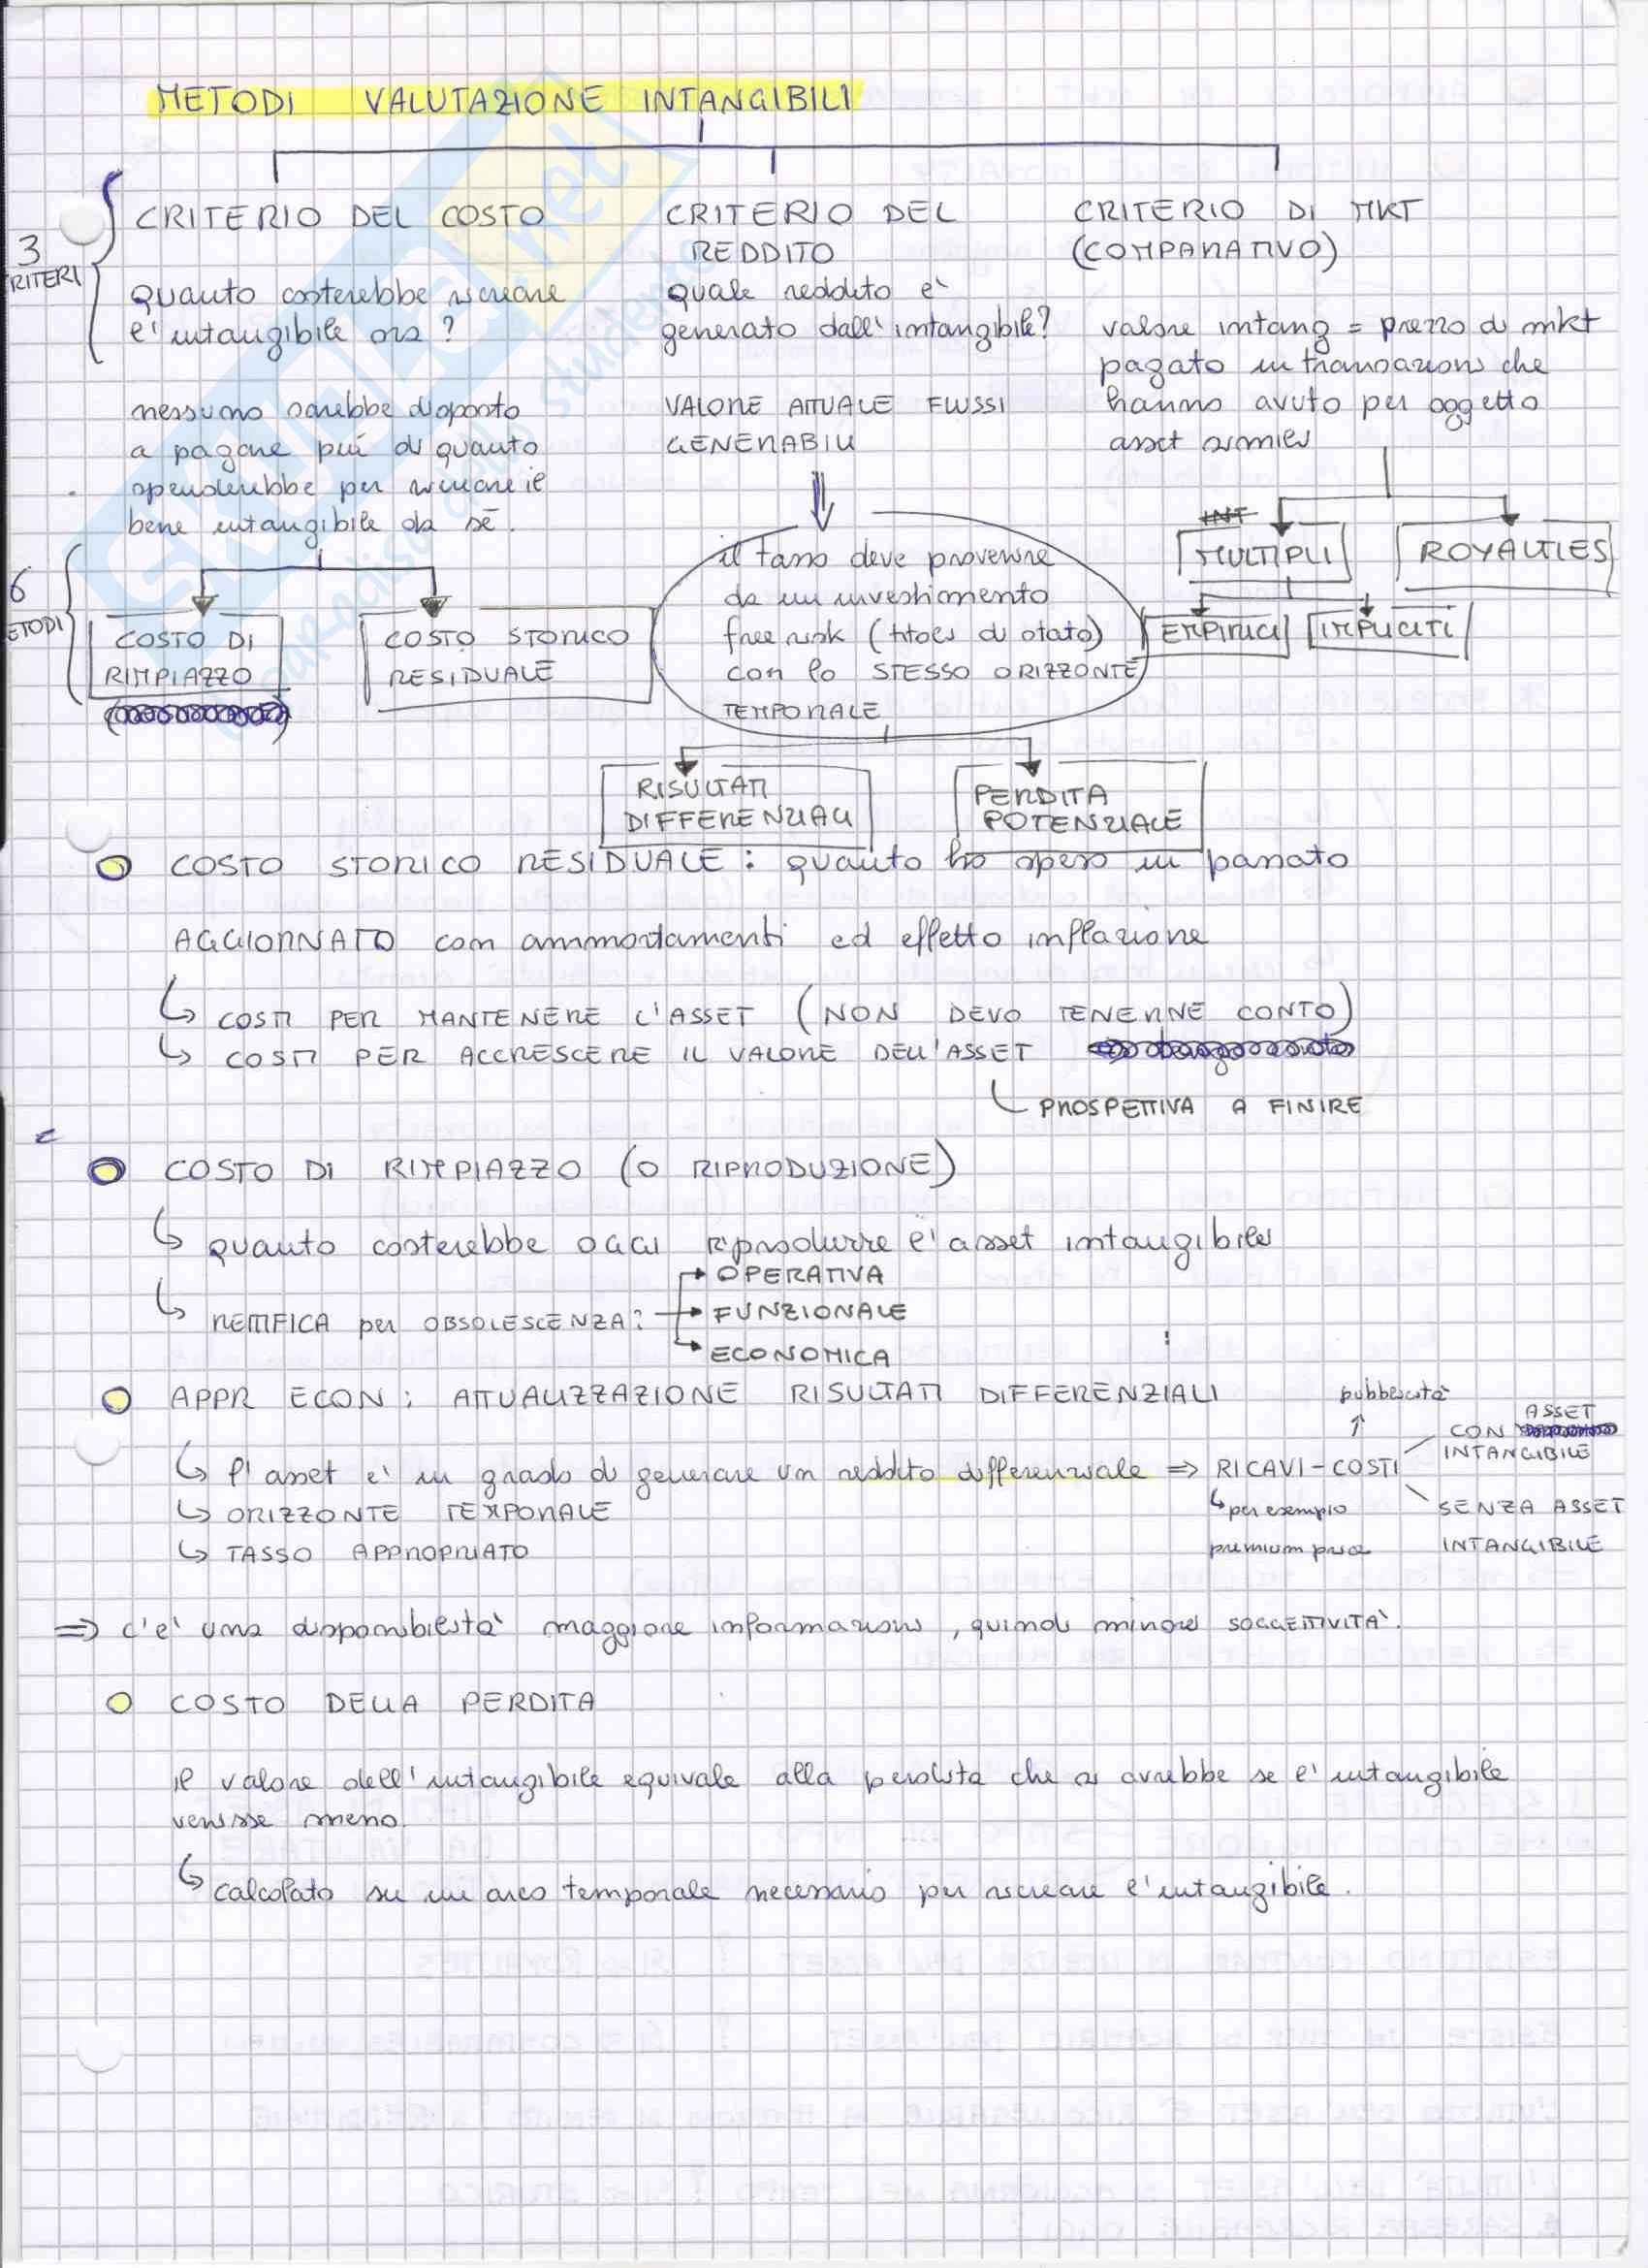 METODI VALUTAZIONE INTANGIBILI
3
CRITERI
CRITERIO DEL COSTO
quanto costerebbe ricreare
l'intangibile ora?
nessuno sarebbe disposto
a pagare più di quanto
spenderebbe per ricreare il
bene intangibile da sé.
CRITERIO DEL
REDDITO
quale reddito è
generato dall'intangibile?
VALORE ATTUALE FLUSSI
GENERABILI
CRITERIO DI MKT
(COMPARATIVO)
valore intang = prezzo di mkt
pagato in transazioni che
hanno avuto per oggetto
asset simili
6
METODI
COSTO DI
RIMPIAZZO
COSTO STORICO
RESIDUALE
il tasso deve provenire
da un investimento
free risk (titoli di stato)
con lo STESSO ORIZZONTE
TEMPORALE
INT
MULTIPLI
ROYALTIES
EMPIRICI
IMPLICITI
RISULTATI
DIFFERENZIALI
PERDITA
POTENZIALE
COSTO STORICO RESIDUALE: quanto ho speso in passato
AGGIORNATO con ammortamenti ed effetto inflazione
COSTI PER MANTENERE L'ASSET (NON DEVO TENERNE CONTO)
COSTI PER ACCRESCERE IL VALORE DELL'ASSET
PROSPETTIVA A FINIRE
COSTO DI RIMPIAZZO (O RIPRODUZIONE)
quanto costerebbe OGGI riprodurre l'asset intangibile
RETTIFICA per OBSOLESCENZA:
OPERATIVA
FUNZIONALE
ECONOMICA
APPR ECON: ATTUALIZZAZIONE RISULTATI DIFFERENZIALI
l'asset è in grado di generare un reddito differenziale ⇒ RICAVI-COSTI
pubblicità
CON ASSET
INTANGIBILE
per esempio
premium price
SENZA ASSET
INTANGIBILE
ORIZZONTE TEMPORALE
TASSO APPROPRIATO
⇒ c'è una disponibilità maggiore informazioni, quindi minore SOGGETTIVITÀ.
COSTO DELLA PERDITA
il valore dell'intangibile equivale alla perdita che si avrebbe se l'intangibile
venisse meno.
calcolato su un arco temporale necessario per ricreare l'intangibile.